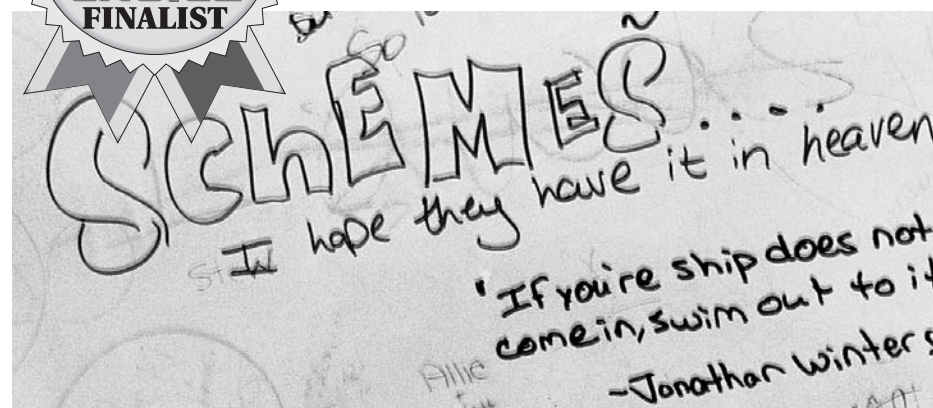 FINALIST
So
SChEMES....
I hope they have it in heaven
"If you're ship does not
come in, swim out to it
~Jonathan Winters
Allie